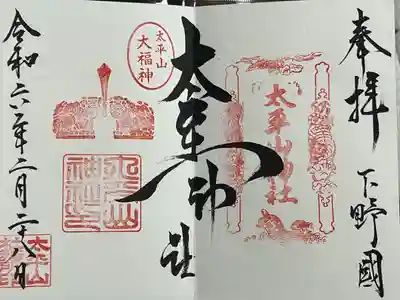 奉拝
下野國
太平山神社
太平神社
太平山
大福神
太平山
神社之印
令和六年二月二十八日
太平山